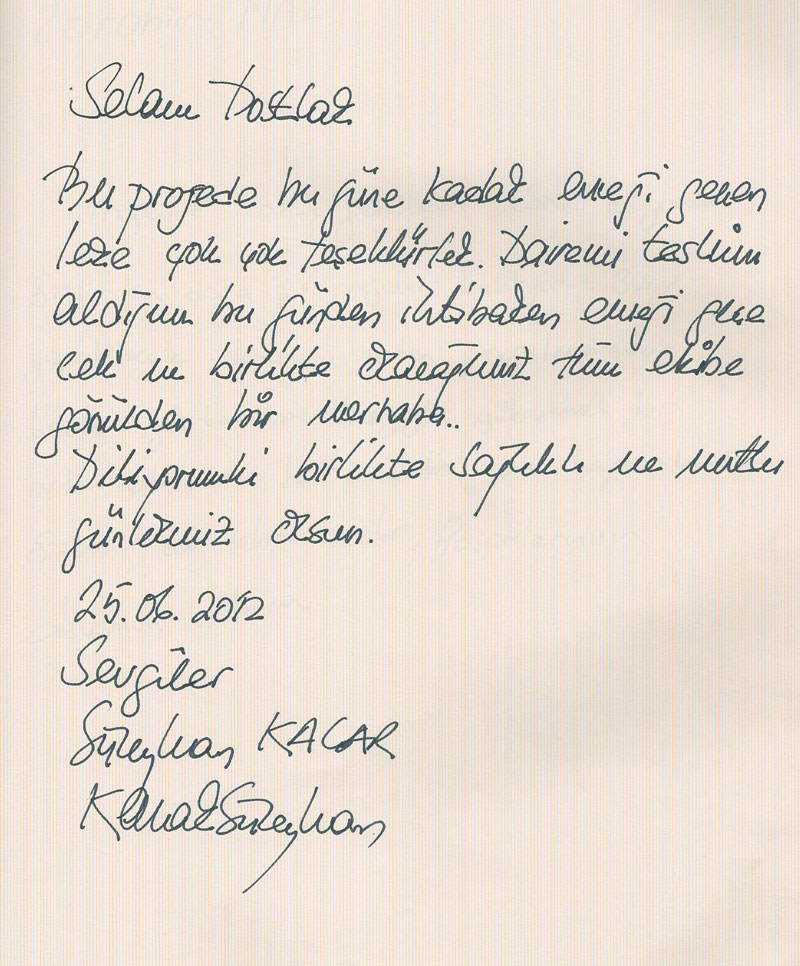 Selam Dostlar
Bu projede bu güne kadar emeği geçen
lere çok çok teşekkürler. Dairemi teslim
aldığım bu günden ihtibaren emeği geçe
cek ve birlikte olacağımız tüm ekibe
gönülden bir merhaba..
Diliyorumki birlikte sağlıklı ve mutlu
günlerimiz olsun.
25.06.2012
Sevgiler
Süleyman KACAR